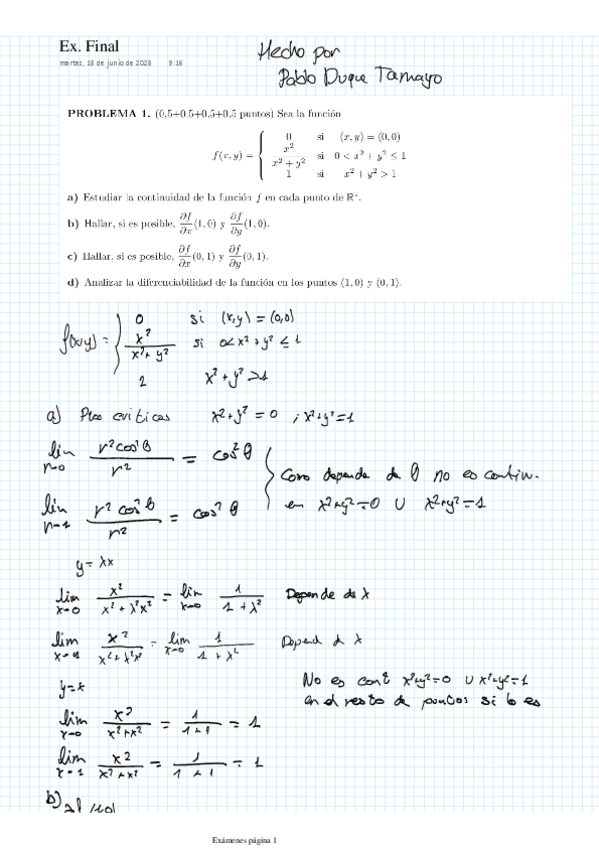 Ex. Final
martes, 18 de junio de 2023 9:16
Hecho por
Pablo Duque Tamayo
PROBLEMA 1. (0,5+0,5+0,5+0,5 puntos) Sea la función
f(x, y) = { 0 si (x, y) = (0, 0)
x² / (x² + y²) si 0 < x² + y² ≤ 1
1 si x² + y² > 1
a) Estudiar la continuidad de la función f en cada punto de ℝ².
b) Hallar, si es posible, ∂f/∂x (1, 0) y ∂f/∂y (1, 0).
c) Hallar, si es posible, ∂f/∂x (0, 1) y ∂f/∂y (0, 1).
d) Analizar la diferenciabilidad de la función en los puntos (1, 0) y (0, 1).
f(x,y) = { 0 si (x,y) = (0,0)
x² / (x² + y²) si 0 < x² + y² ≤ 1
1 x² + y² > 1
a) Ptos criticos x² + y² = 0 ; x² + y² = 1
lim r→0 r² cos² θ / r² = cos² θ
Como depende de θ no es contin.
lim r→1 r² cos² θ / r² = cos² θ
en x² + y² = 0 U x² + y² = 1
y = λx
lim x→0 x² / (x² + λ²x²) = lim x→0 1 / (1 + λ²) Depende de λ
lim x² / (x² + λ²x²) = lim x→0 1 / (1 + λ²) Depend d λ
No es cont x² + y² = 0 U x² + y² = 1
y = x
en el resto de puntos si lo es
lim x→0 x² / (x² + x²) = 1 / (1 + 1) = 1
lim x→1 x² / (x² + x²) = 1 / (1 + 1) = 1
b)
Exámenes página 1